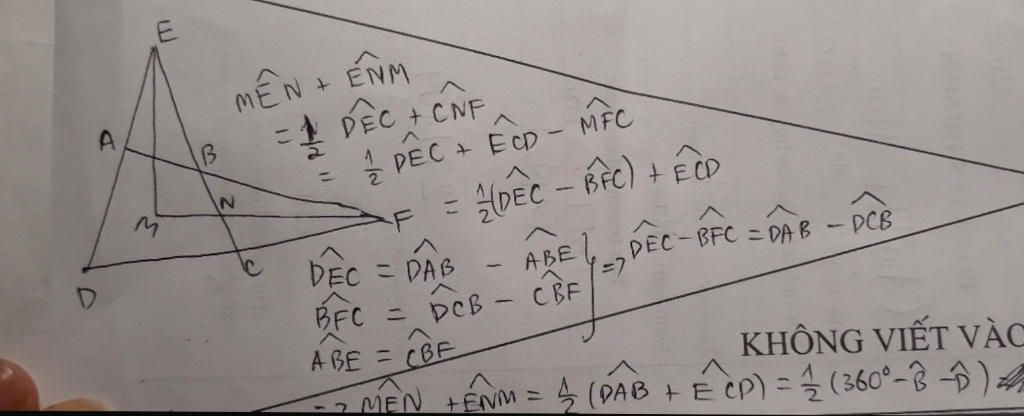 E
A
B
M
N
F
D
C
MÊN + ENM̂
= 1/2 DÊC + CN̂F
= 1/2 DÊC + EĈD - MF̂C
= 1/2(DÊC - BF̂C) + EĈD
DÊC = DÂB - AB̂E
BF̂C = DĈB - CB̂F
AB̂E = CB̂F
=> DÊC - BF̂C = DÂB - DĈB
KHÔNG VIẾT VÀO
=> MÊN + EN̂M = 1/2 (DÂB + EĈD) = 1/2 (360° - B̂ - D̂)